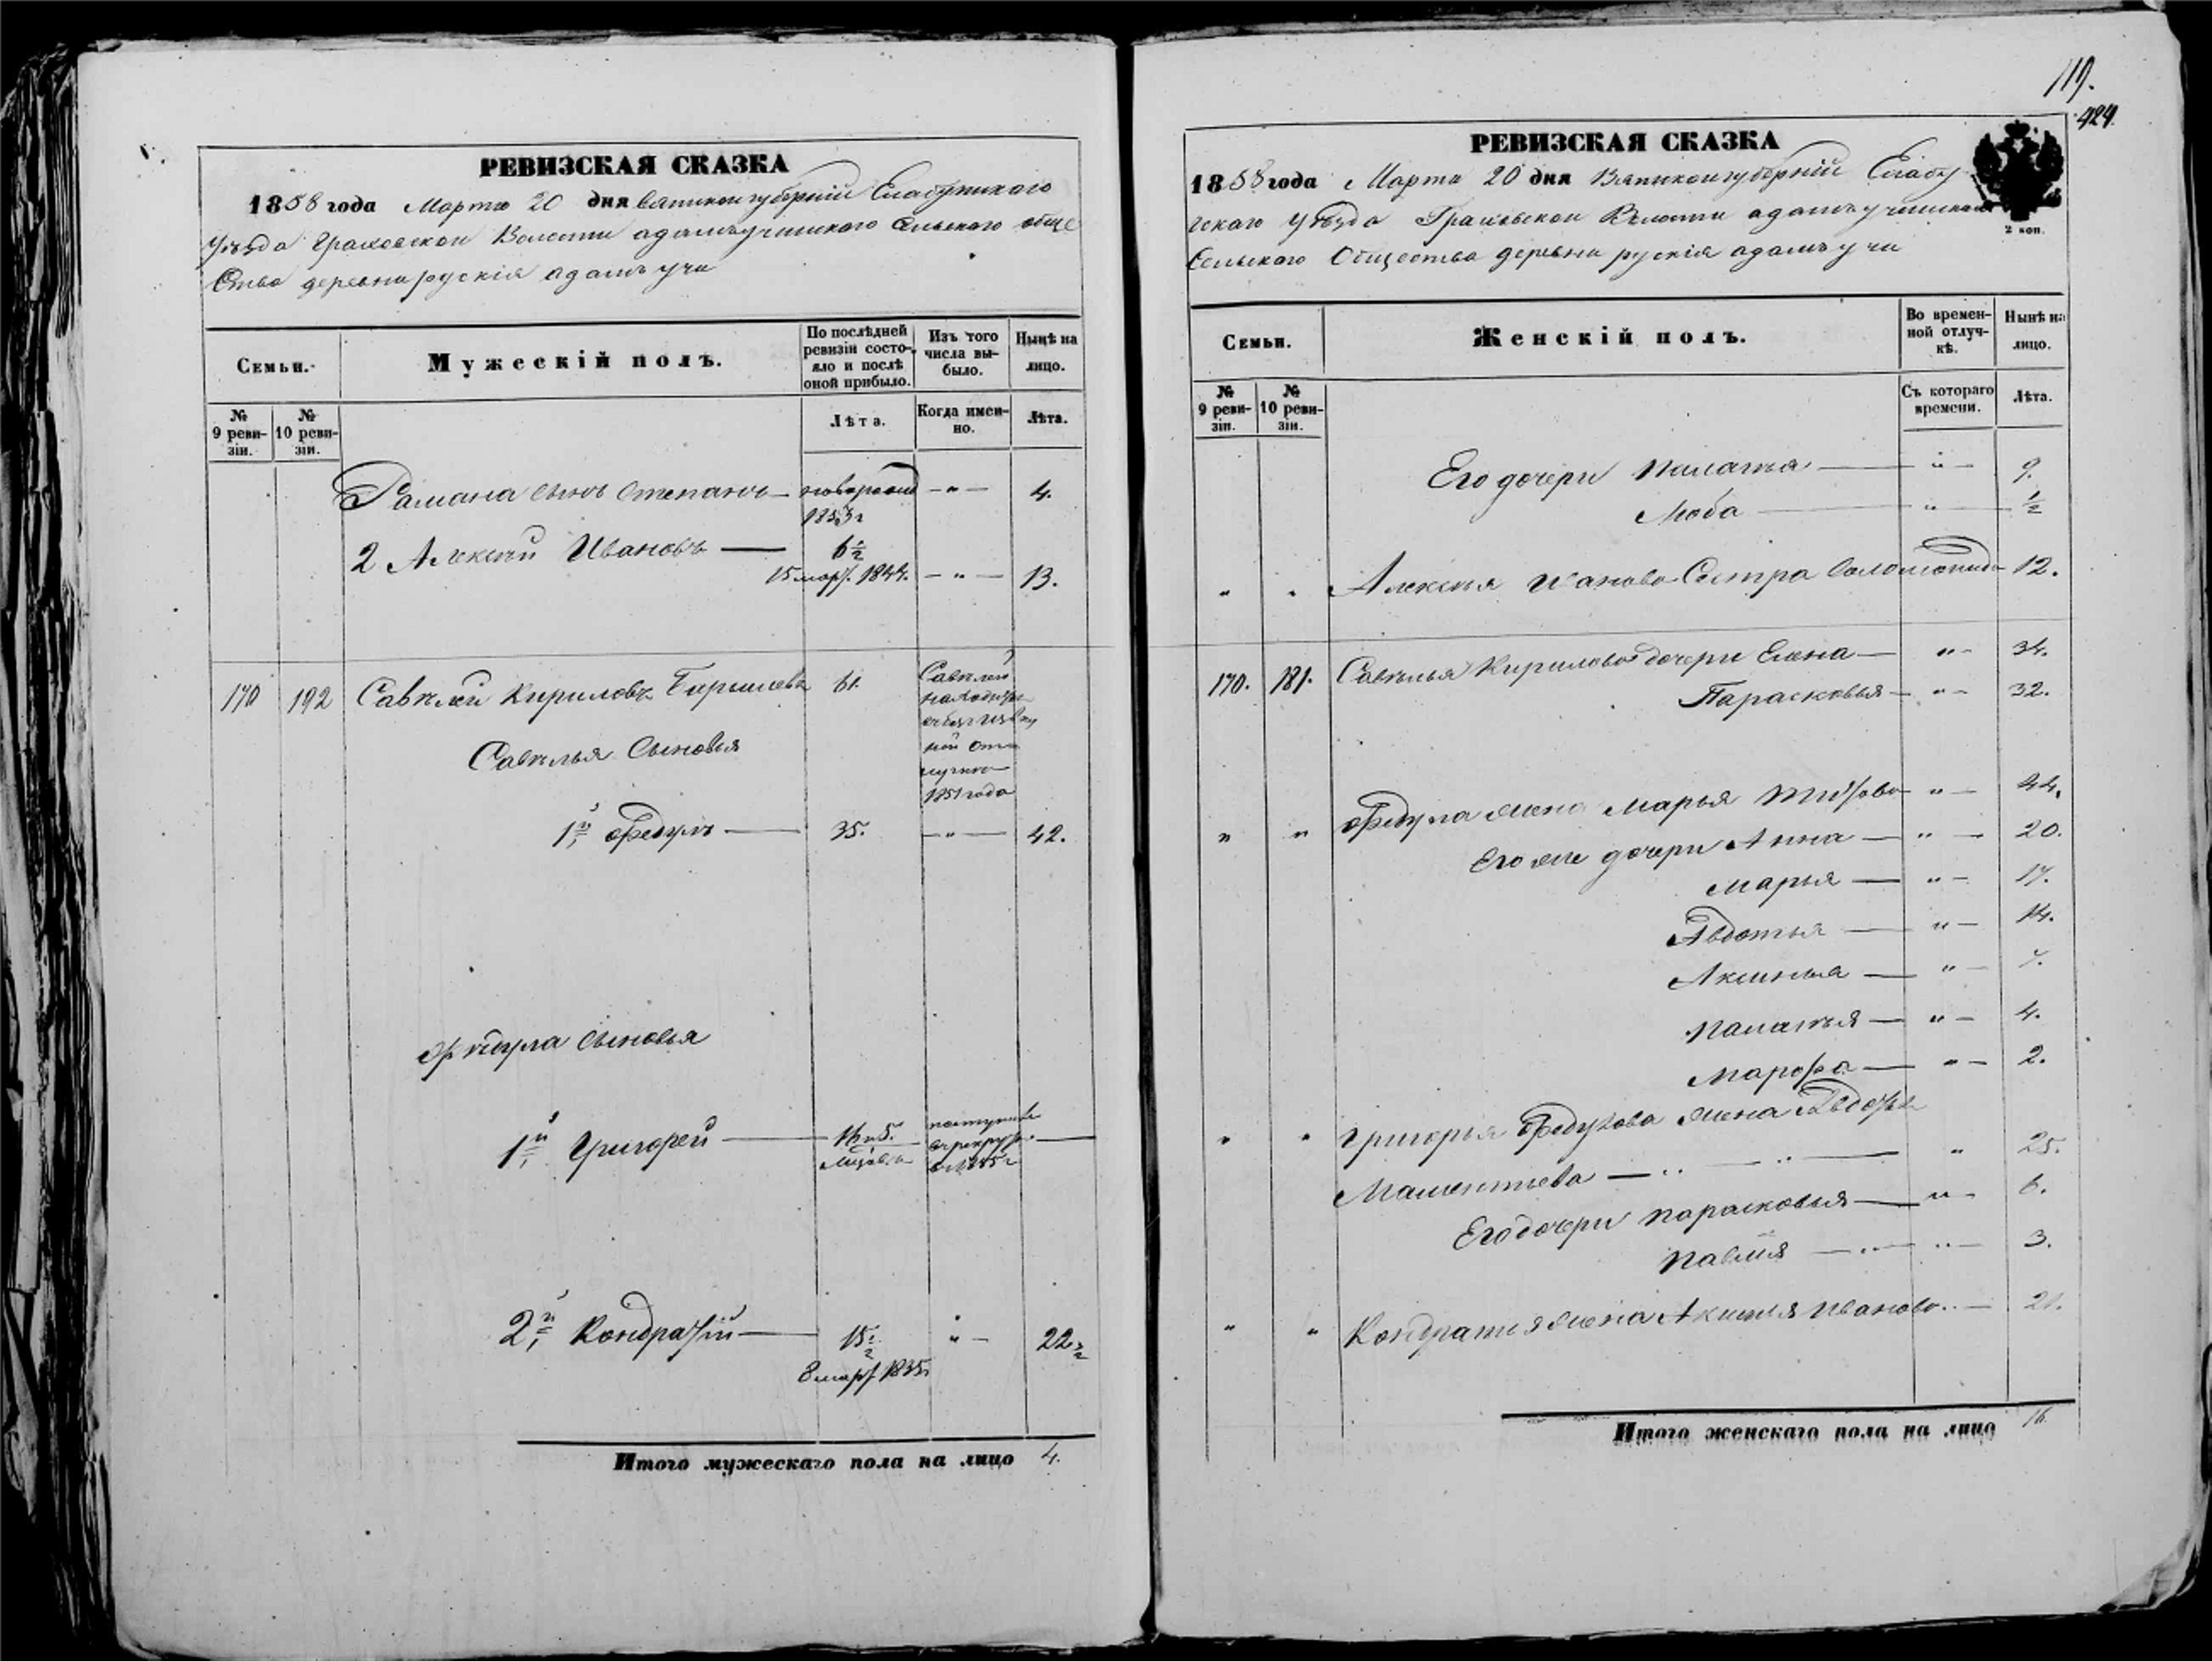 РЕВИЗСКАЯ СКАЗКА
1858 года Марта 20 дня Вятской губерніи Елабужскаго
Уѣзда Граховской Волости адамъучинскаго Сельскаго обще
Ства деревни рускія адамъ учи
Семьи.
Мужескій полъ.
По послѣдней ревизіи состояло и послѣ оной прибыло.
Изъ того числа выбыло.
Нынѣ на лицо.
№ 9 ревизіи.
№ 10 ревизіи.
Лѣта.
Когда именно.
Лѣта.
Рамана сынъ Степанъ — — " — 4.
1853 г
2 Алексѣй Ивановъ — 6 1/2
15 мар. 1844. — " — 13.
170 192 Савѣлей Кириловъ 61. Савѣлей
Савѣлья Сыновья
1851 года
1й Федулъ — 35. — " — 42.
Федула Сыновья
1й Григорей — 16 и 5. —
2й Кондратій — 15 1/2 " — 22 1/2
8 мар 1835
Итого мужескаго пола на лицо 4.
119.
424.
РЕВИЗСКАЯ СКАЗКА
1858 года Марта 20 дня Вятской губерніи Елабу
жскаго Уѣзда Граховской Волости адамъучинскаго
Сельскаго Общества деревни рускія адамъ учи
2 коп.
Семьи.
Женскій полъ.
Во временной отлучкѣ.
Нынѣ на лицо.
№ 9 ревизіи.
№ 10 ревизіи.
Съ котораго времени.
Лѣта.
Его дочери Палатья — " — 9.
Люба — " — 1/2
" " Алексѣя Иванова Сестра Саломонида 12.
170. 181. Савѣлья Кирилова дочери Елена — " — 34.
Парасковья — " — 32.
" " Федула жена Марья — " — 44.
Его же дочери Анна — " — 20.
Марья — " — 17.
Авдотья — " — 14.
Аксинья — " — 7.
Палатья — " — 4.
Марфа — " — 2.
" " Григорья Федулова жена Авдотья
Маментьева — " — " — " 25.
Его дочери Парасковья — " — 6.
— " — " — 3.
" " Кондратія жена Иванова — 21.
Итого женскаго пола на лицо 16